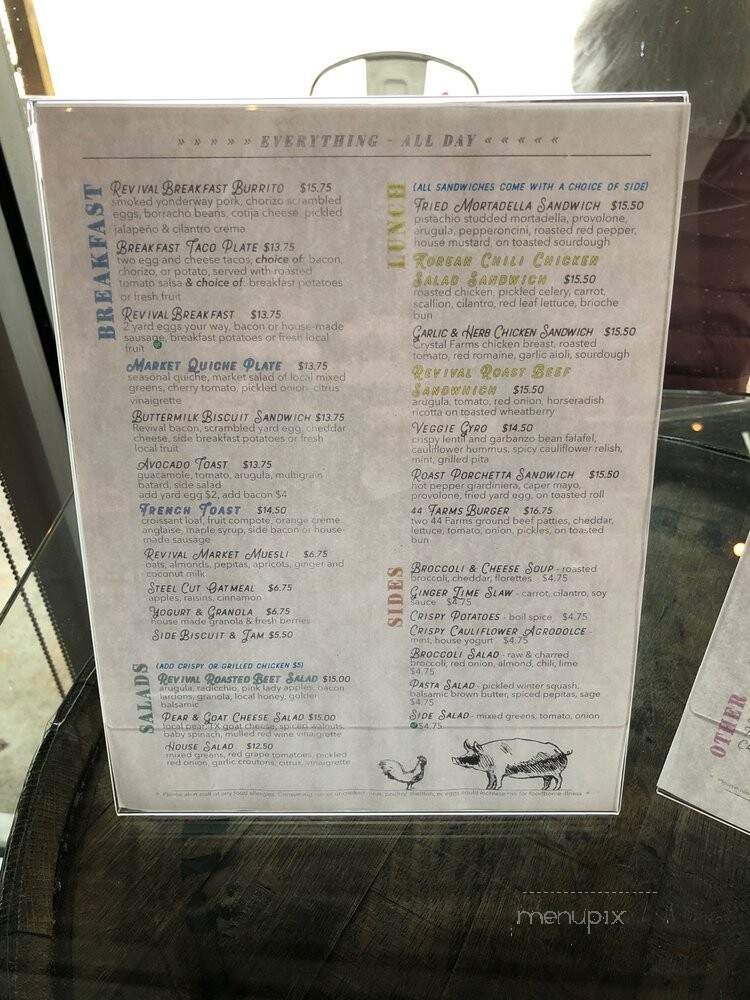 » » » » » EVERYTHING - ALL DAY « « « « «
BREAKFAST
REVIVAL BREAKFAST BURRITO $15.75
smoked yonderway pork, chorizo scrambled
eggs, borracho beans, cotija cheese, pickled
jalapeño & cilantro crema
BREAKFAST TACO PLATE $13.75
two egg and cheese tacos, choice of: bacon,
chorizo, or potato, served with roasted
tomato salsa & choice of: breakfast potatoes
or fresh fruit
REVIVAL BREAKFAST $13.75
2 yard eggs your way, bacon or house-made
sausage, breakfast potatoes or fresh local
fruit
MARKET QUICHE PLATE $13.75
seasonal quiche, market salad of local mixed
greens, cherry tomato, pickled onion, citrus
vinaigrette
BUTTERMILK BISCUIT SANDWICH $13.75
Revival bacon, scrambled yard egg, cheddar
cheese, side breakfast potatoes or fresh
local fruit
AVOCADO TOAST $13.75
guacamole, tomato, arugula, multigrain
batard, side salad
add yard egg $2, add bacon $4
FRENCH TOAST $14.50
croissant loaf, fruit compote, orange creme
anglaise, maple syrup, side bacon or house-
made sausage
REVIVAL MARKET MUESLI $6.75
oats, almonds, pepitas, apricots, ginger and
coconut milk
STEEL CUT OATMEAL $6.75
apples, raisins, cinnamon
YOGURT & GRANOLA $6.75
house made granola & fresh berries
SIDE BISCUIT & JAM $5.50
SALADS
(ADD CRISPY OR GRILLED CHICKEN $5)
REVIVAL ROASTED BEET SALAD $15.00
arugula, radicchio, pink lady apples, bacon
lardons, granola, local honey, golden
balsamic
PEAR & GOAT CHEESE SALAD $15.00
local pear, TX goat cheese, spiced walnuts,
baby spinach, mulled red wine vinaigrette
HOUSE SALAD $12.50
mixed greens, red grape tomatoes, pickled
red onion, garlic croutons, citrus, vinaigrette
LUNCH
(ALL SANDWICHES COME WITH A CHOICE OF SIDE)
FRIED MORTADELLA SANDWICH $15.50
pistachio studded mortadella, provolone,
arugula, pepperoncini, roasted red pepper,
house mustard, on toasted sourdough
KOREAN CHILI CHICKEN
SALAD SANDWICH $15.50
roasted chicken, pickled celery, carrot,
scallion, cilantro, red leaf lettuce, brioche
bun
GARLIC & HERB CHICKEN SANDWICH $15.50
Crystal Farms chicken breast, roasted
tomato, red romaine, garlic aioli, sourdough
REVIVAL ROAST BEEF
SANDWHICH $15.50
arugula, tomato, red onion, horseradish
ricotta on toasted wheatberry
VEGGIE GYRO $14.50
crispy lentil and garbanzo bean falafel,
cauliflower hummus, spicy cauliflower relish,
mint, grilled pita
ROAST PORCHETTA SANDWICH $15.50
hot pepper giardiniera, caper mayo,
provolone, fried yard egg, on toasted roll
44 FARMS BURGER $16.75
two 44 Farms ground beef patties, cheddar,
lettuce, tomato, onion, pickles, on toasted
bun
SIDES
BROCCOLI & CHEESE SOUP - roasted
broccoli, cheddar, florettes $4.75
GINGER LIME SLAW - carrot, cilantro, soy
sauce $4.75
CRISPY POTATOES - boil spice $4.75
CRISPY CAULIFLOWER AGRODOLCE -
mint, house yogurt $4.75
BROCCOLI SALAD - raw & charred
broccoli, red onion, almond, chili, lime
$4.75
PASTA SALAD - pickled winter squash,
balsamic brown butter, spiced pepitas, sage
$4.75
SIDE SALAD - mixed greens, tomato, onion
$4.75
OTHER
menupix